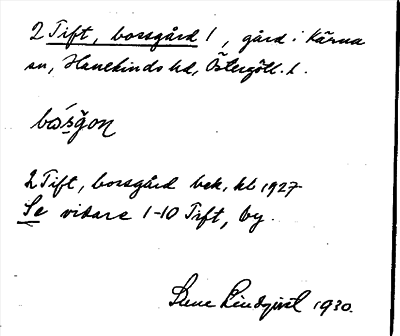 2 Tift, bossgård 1, gård i Kärna
sn, Hanekinds hd, Östergötl. l.
båsgon
2 Tift, bossgård bek, kb 1927
Se vidare 1-10 Tift, by.
Sune Lindqvist 1930.